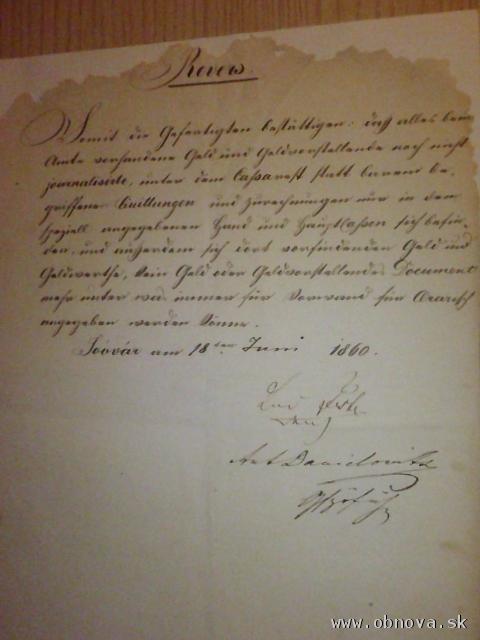 Revers
Womit die Gefertigten bestättigen: daß alles beim
Amte vorhandene Geld und Geldvorstellende noch nicht
journalisirte, unter dem Cassarest statt barem be-
griffenen Quittungen und Zurechnungen nur in den
speziell angegebenen Hand und Hauptcassen sich befin-
den, und außerdem sich dort vorfindenden Geld und
Geldwerthe, kein Geld oder Geldvorstellendes Document
mehr unter was immer für Vorwand für Ararisch
angegeben werden könne.
Sóóvár am 18ten Juni 1860.
Ant Danielovitz
www.obnova.sk